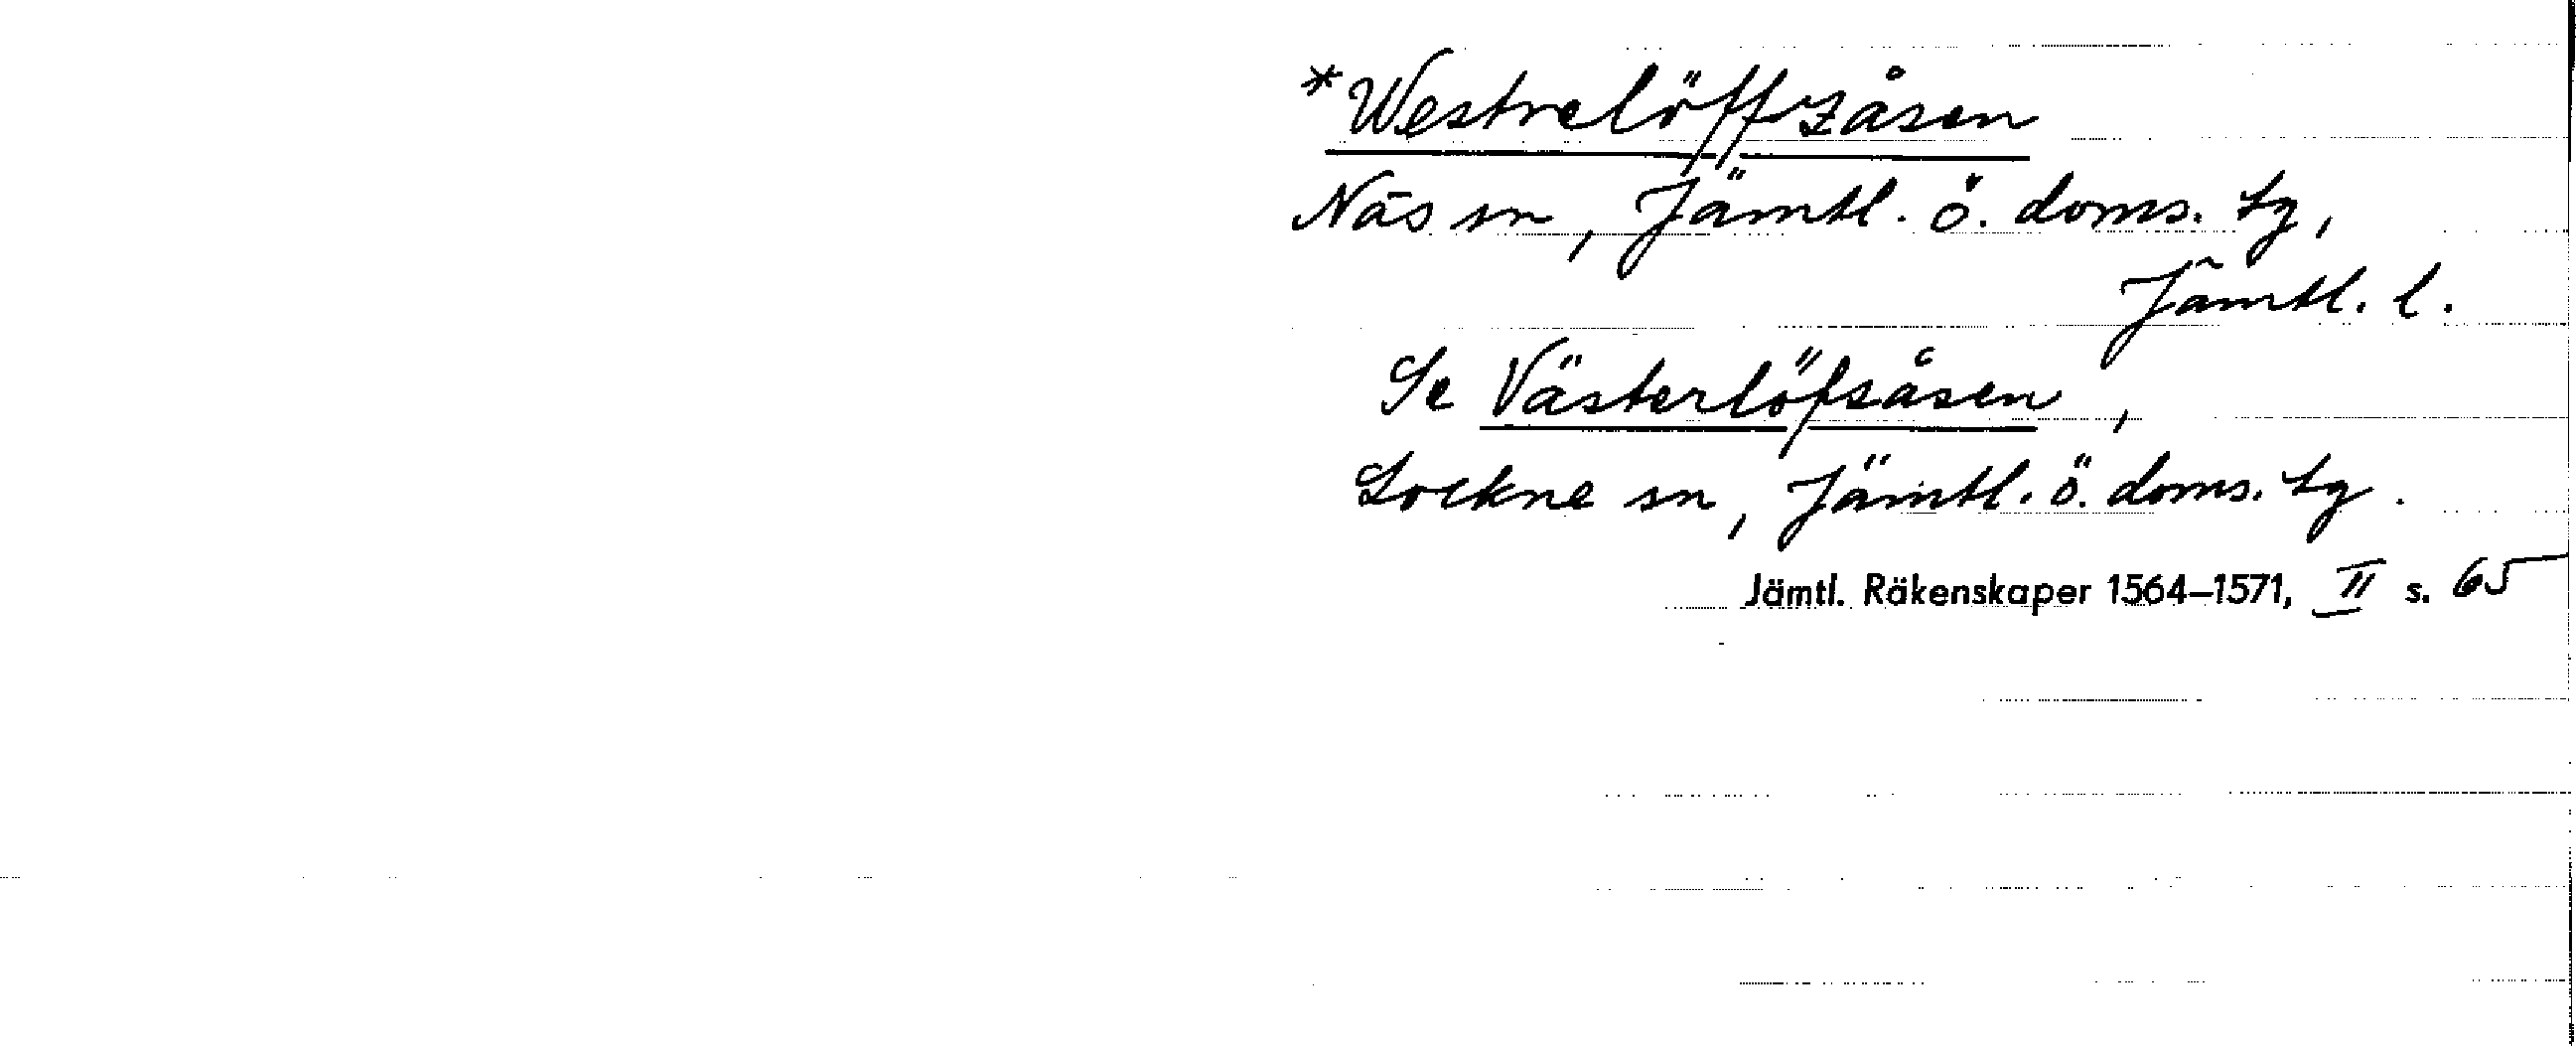 *Westrelöffzåsen
Näs sn, Jämtl. ö. doms. tg,
Jämtl. l.
Se Västerlöfsåsen,
Lockne sn, Jämtl. ö. doms. tg.
Jämtl. Räkenskaper 1564–1571, II s. 65